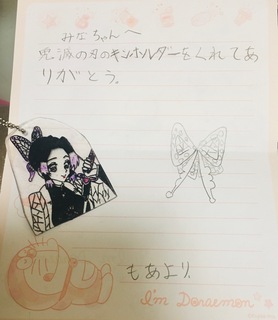 みなちゃんへ
鬼滅の刃のキーホルダーをくれてあ
りがとう。
もあより
I'm Doraemon